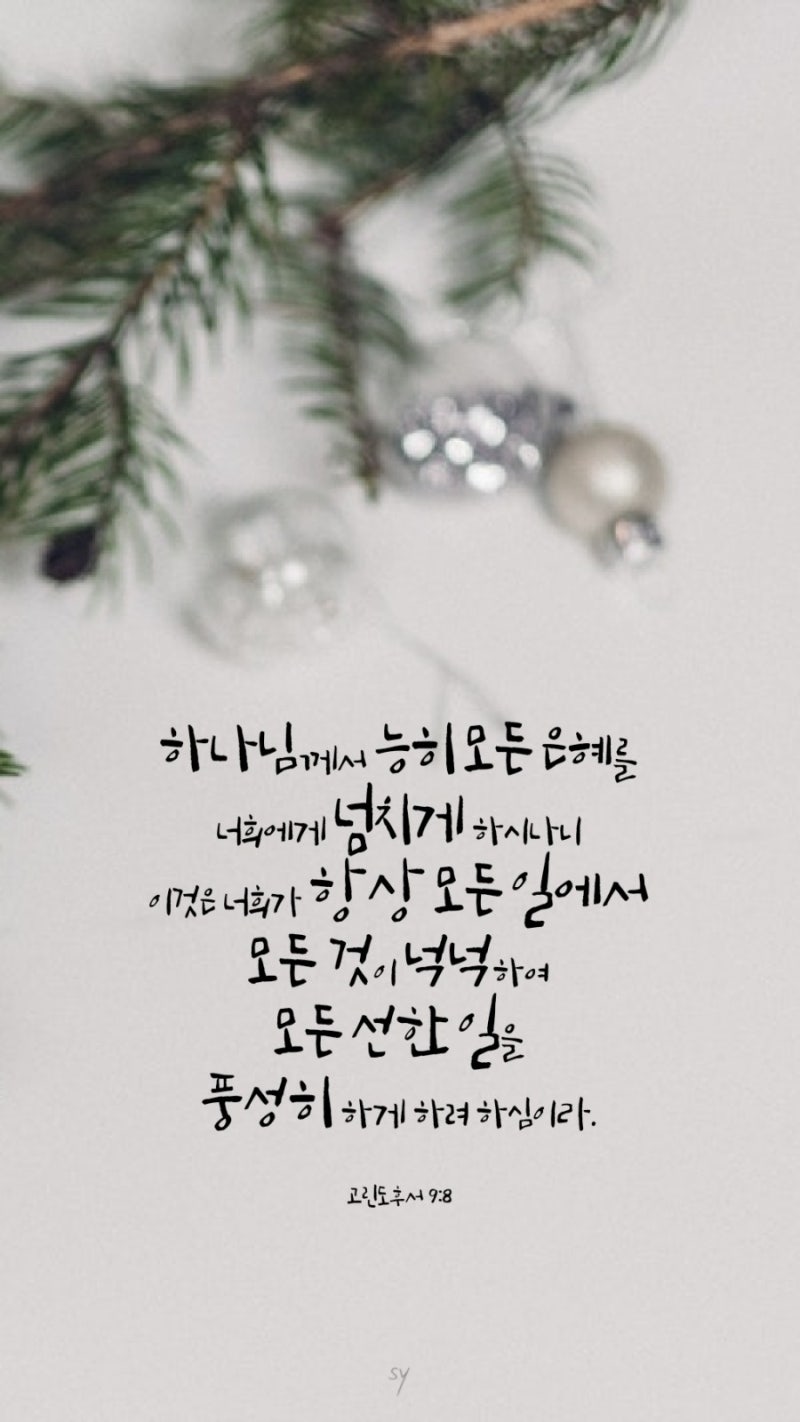 하나님께서 능히 모든 은혜를
너희에게 넘치게 하시나니
이것은 너희가 항상 모든 일에서
모든 것이 넉넉하여
모든 선한 일을
풍성히 하게 하려 하심이라.
고린도후서 9:8
sy